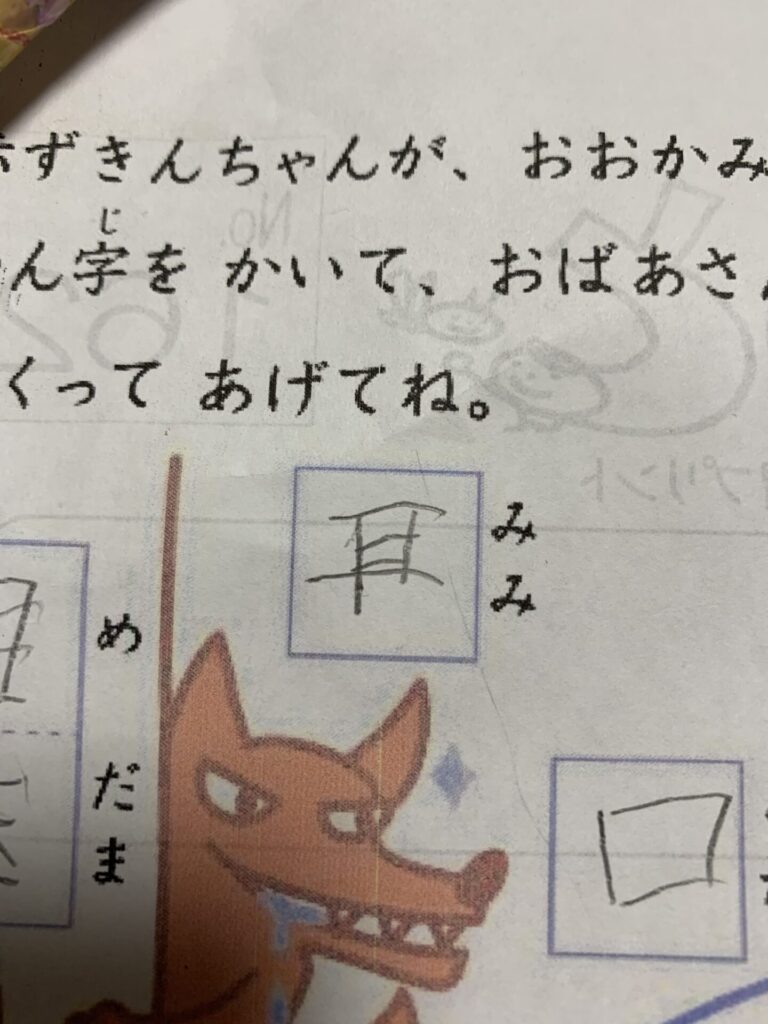 ずきんちゃんが、おおかみ
じ
ん字を かいて、おばあさ
くって あげてね。
耳
みみ
目
めだま
口